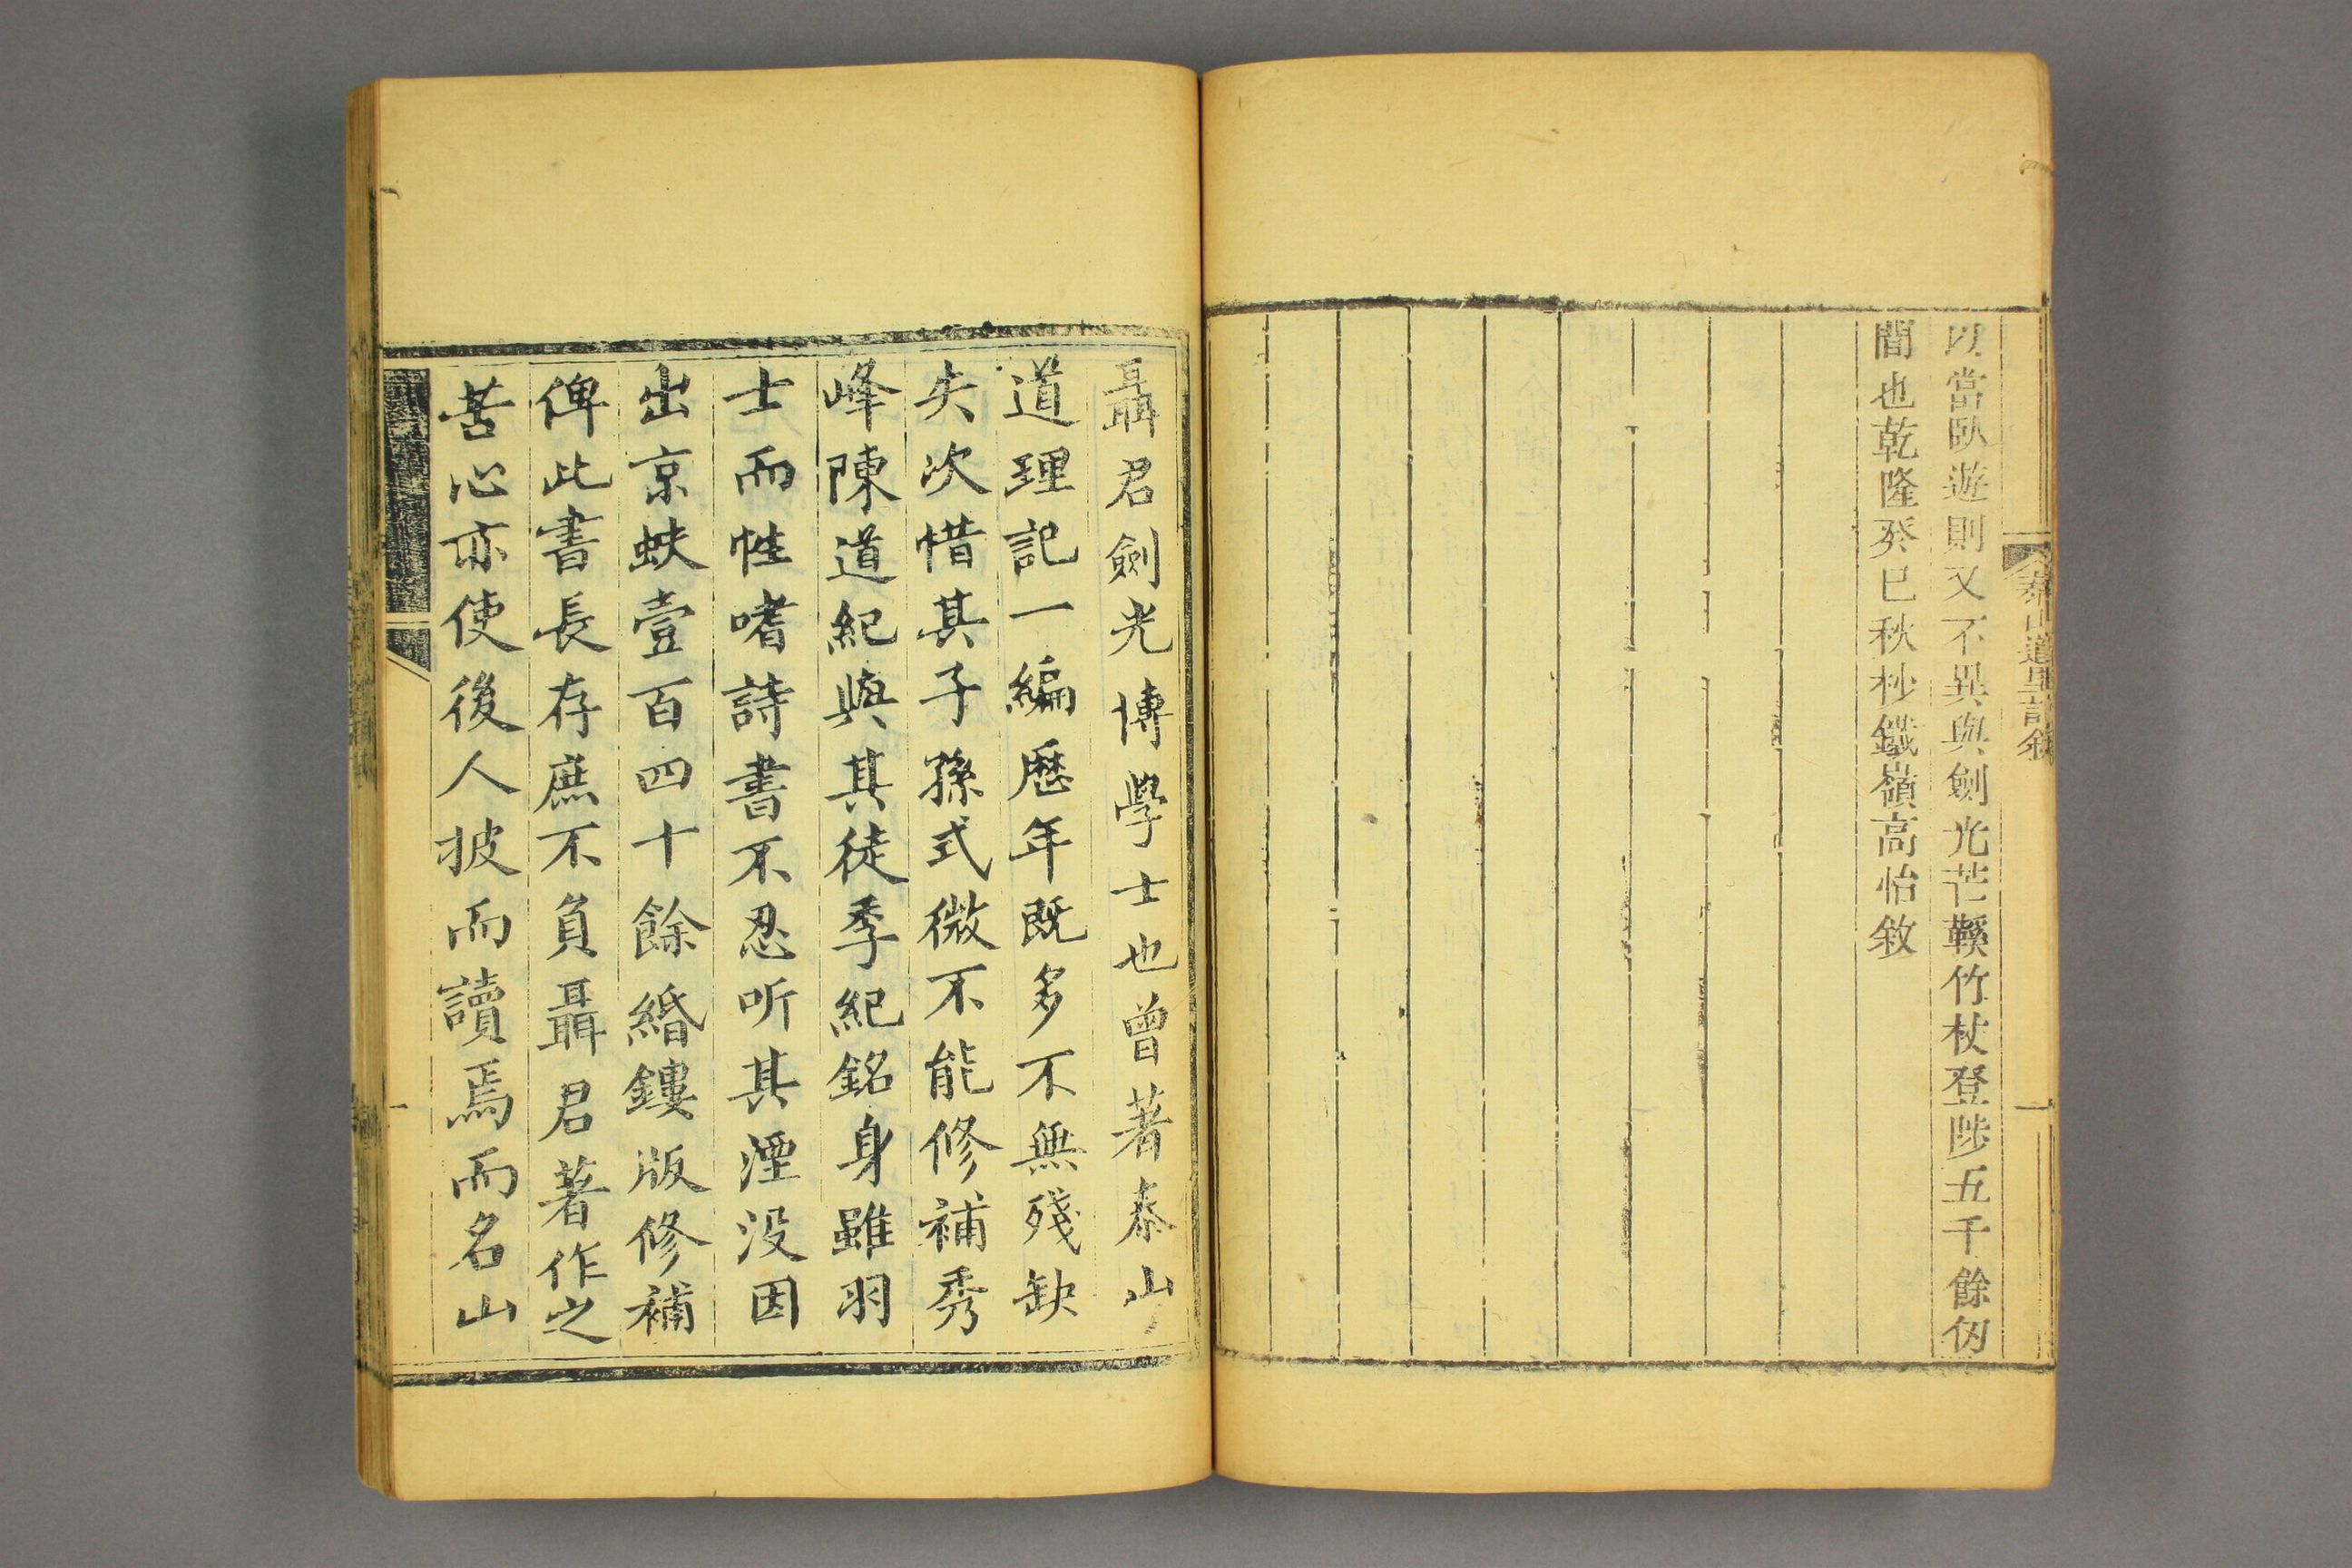 泰山道里記敘
以當臥遊則又不異與劍光芒鞵竹杖登陟五千餘仞
間也乾隆癸巳秋杪鐵嶺高怡敘
聶君劍光博學士也曾著泰山
道理記一編歷年既多不無殘缺
失次惜其子孫式微不能修補秀
峰陳道紀與其徒季紀銘身雖羽
士而性嗜詩書不忍听其湮没因
出京蚨壹百四十餘緡鏤版修補
俾此書長存庶不負聶君著作之
苦心亦使後人披而讀焉而名山